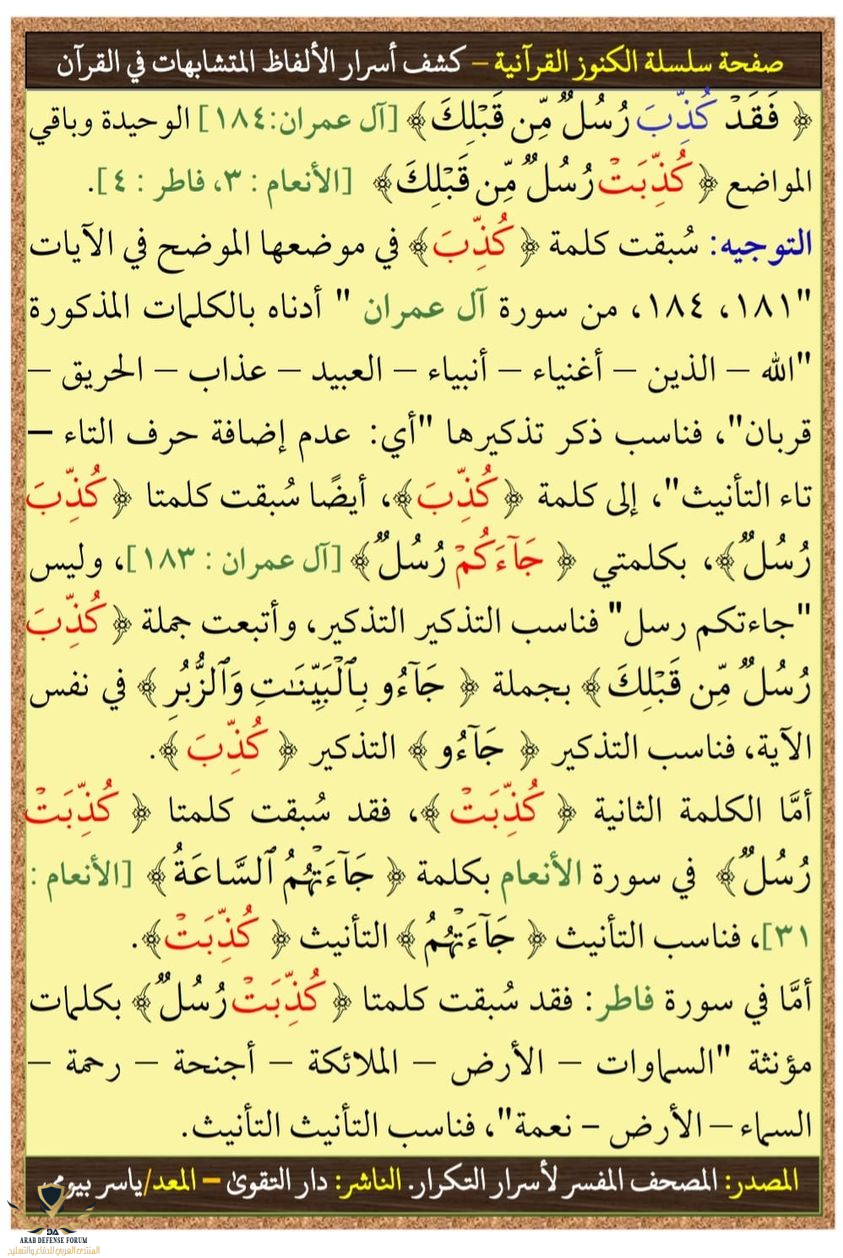 صفحة سلسلة الكنوز القرآنية – كشف أسرار الألفاظ المتشابهات في القرآن
﴿ فَقَدۡ كُذِّبَ رُسُلٌ مِّن قَبۡلِكَ﴾ [آل عمران:١٨٤] الوحيدة وباقي
المواضع ﴿ كُذِّبَتۡ رُسُلٌ مِّن قَبۡلِكَ﴾ [الأنعام : ٣، فاطر : ٤].
التوجيه: سُبقت كلمة ﴿ كُذِّبَ﴾ في موضعها الموضح في الآيات
"١٨١، ١٨٤، من سورة آل عمران " أدناه بالكلمات المذكورة
"الله – الذين – أغنياء – أنبياء – العبيد – عذاب – الحريق –
قربان"، فناسب ذكر تذكيرها "أي: عدم إضافة حرف التاء –
تاء التأنيث"، إلى كلمة ﴿ كُذِّبَ﴾، أيضًا سُبقت كلمتا ﴿ كُذِّبَ
رُسُلٌ﴾، بكلمتي ﴿ جَآءَكُمۡ رُسُلٌ﴾ [آل عمران : ١٨٣]، وليس
"جاءتكم رسل" فناسب التذكير التذكير، وأتبعت جملة ﴿ كُذِّبَ
رُسُلٌ مِّن قَبۡلِكَ﴾ بجملة ﴿ جَآءُو بِٱلۡبَيِّنَٰتِ وَٱلزُّبُرِ ﴾ في نفس
الآية، فناسب التذكير ﴿ جَآءُو ﴾ التذكير ﴿ كُذِّبَ ﴾.
أمَّا الكلمة الثانية ﴿ كُذِّبَتۡ ﴾، فقد سُبقت كلمتا ﴿ كُذِّبَتۡ
رُسُلٌ﴾ في سورة الأنعام بكلمة ﴿ جَآءَتۡهُمُ ٱلسَّاعَةُ﴾ [الأنعام :
٣١]، فناسب التأنيث ﴿ جَآءَتۡهُمُ ﴾ التأنيث ﴿ كُذِّبَتۡ ﴾.
أمَّا في سورة فاطر: فقد سُبقت كلمتا ﴿ كُذِّبَتۡ رُسُلٌ﴾ بكلمات
مؤنثة "السماوات – الأرض – الملائكة – أجنحة – رحمة –
السماء – الأرض – نعمة"، فناسب التأنيث التأنيث.
المصدر: المصحف المفسر لأسرار التكرار. الناشر: دار التقوىٰ – المعد/ياسر بيومي
ARAB DEFENSE FORUM
المنتدى العربي للدفاع والتسليح